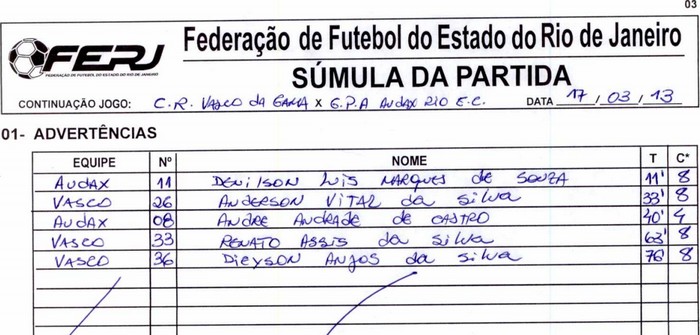 03
FERJ
FEDERAÇÃO DE FUTEBOL DO ESTADO DO RIO DE JANEIRO
Federação de Futebol do Estado do Rio de Janeiro
SÚMULA DA PARTIDA
CONTINUAÇÃO JOGO: C.R. VASCO da GAMA x G.P.A AUDAX RIO E.C. DATA 17 / 03 / 13
01- ADVERTÊNCIAS
EQUIPE Nº NOME T C*
AUDAX 11 DENILSON LUIS MARQUES de SOUZA 11' 8
VASCO 26 ANDERSON VITAL da Silva 33' 8
AUDAX 08 ANDRE ANDRADE de CASTRO 40' 4
VASCO 33 RENATO ASSIS da Silva 63' 8
VASCO 36 DIEYSON ANJOS da Silva 76 8